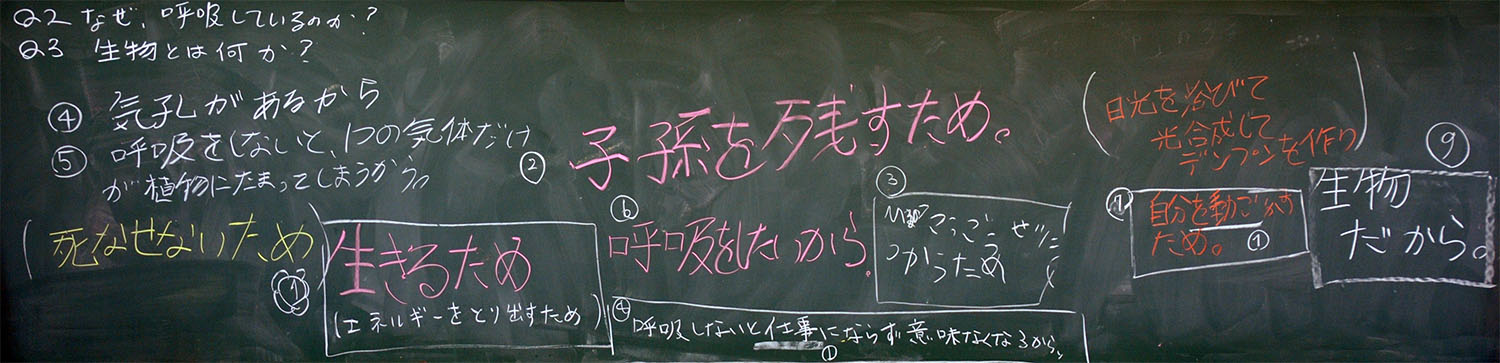 Q2 なぜ、呼吸しているのか?
Q3 生物とは何か?
④ 気孔があるから
⑤ 呼吸をしないと、1つの気体だけ
が植物にたまってしまうから。
(死なせないため)
① 生きるため
(エネルギーをとり出すため)
② 子孫を残すため。
⑥ 呼吸をしたいから。
③
つかうため
④ 呼吸しないと仕事にならず意味なくなるから。
①
(日光を浴びて
光合成して
デンプンを作り)
自分を動ごかす
ため。 ①
⑨
生物
だから。